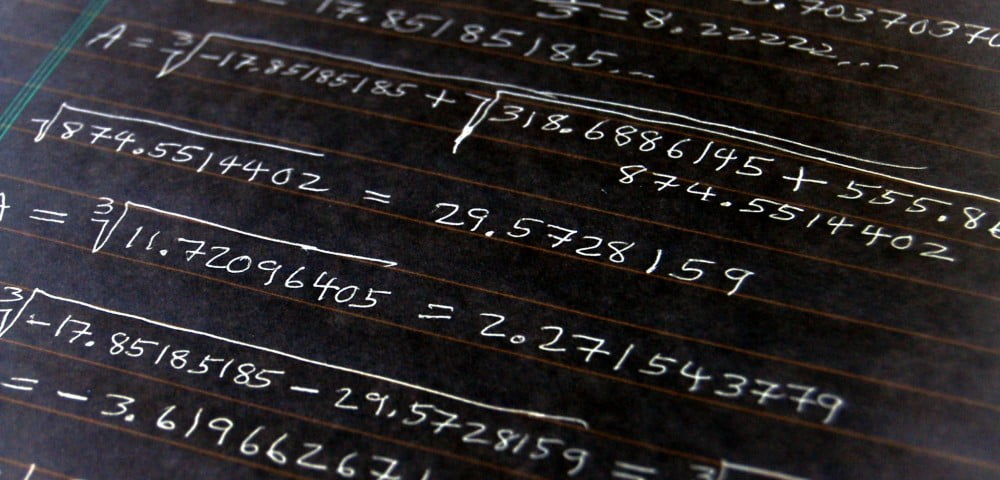 = 17.85185185...
/3 = 8.22222...
.70370370
A = ∛(-17.85185185 + √(318.6886145 + 555.86
874.5514402
√874.5514402 = 29.5728159
A = ∛11.72096405 = 2.271543779
∛(-17.85185185 - 29.5728159) = ∛
= -3.61966267